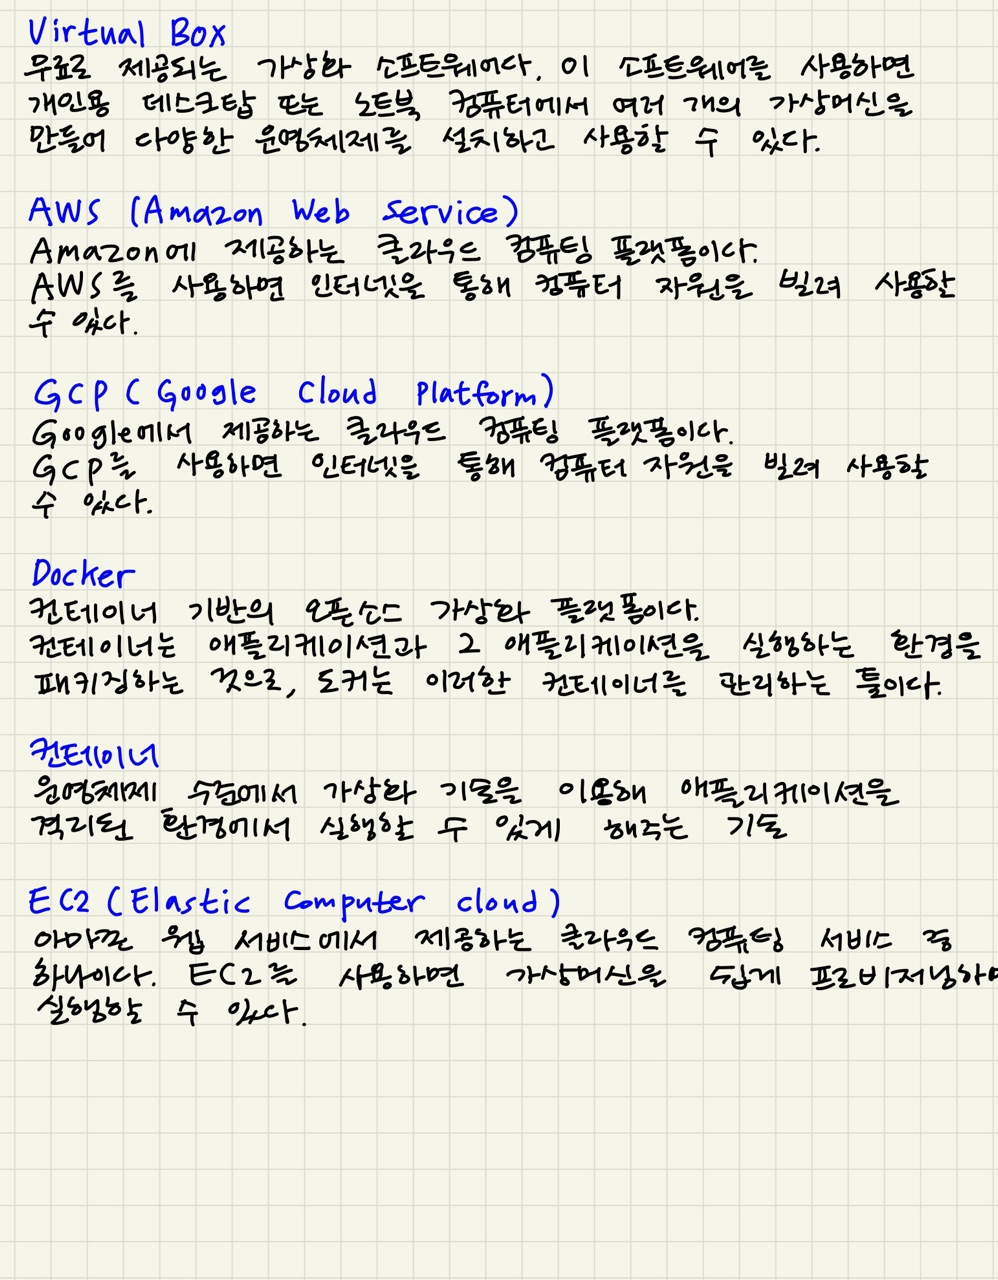 Virtual Box
무료로 제공되는 가상화 소프트웨어다. 이 소프트웨어를 사용하면
개인용 데스크탑 또는 노트북 컴퓨터에서 여러 개의 가상머신을
만들어 다양한 운영체제를 설치하고 사용할 수 있다.
AWS (Amazon Web Service)
Amazon에 제공하는 클라우드 컴퓨팅 플랫폼이다.
AWS를 사용하면 인터넷을 통해 컴퓨터 자원을 빌려 사용할
수 있다.
GCP ( Google Cloud Platform)
Google에서 제공하는 클라우드 컴퓨팅 플랫폼이다.
GCP를 사용하면 인터넷을 통해 컴퓨터 자원을 빌려 사용할
수 있다.
Docker
컨테이너 기반의 오픈소스 가상화 플랫폼이다.
컨테이너는 애플리케이션과 그 애플리케이션을 실행하는 환경을
패키징하는 것으로, 도커는 이러한 컨테이너를 관리하는 툴이다.
컨테이너
운영체제 수준에서 가상화 기술을 이용해 애플리케이션을
격리된 환경에서 실행할 수 있게 해주는 기술
EC2 (Elastic Computer cloud)
아마존 웹 서비스에서 제공하는 클라우드 컴퓨팅 서비스 중
하나이다. EC2를 사용하면 가상머신을 쉽게 프로비저닝하여
실행할 수 있다.